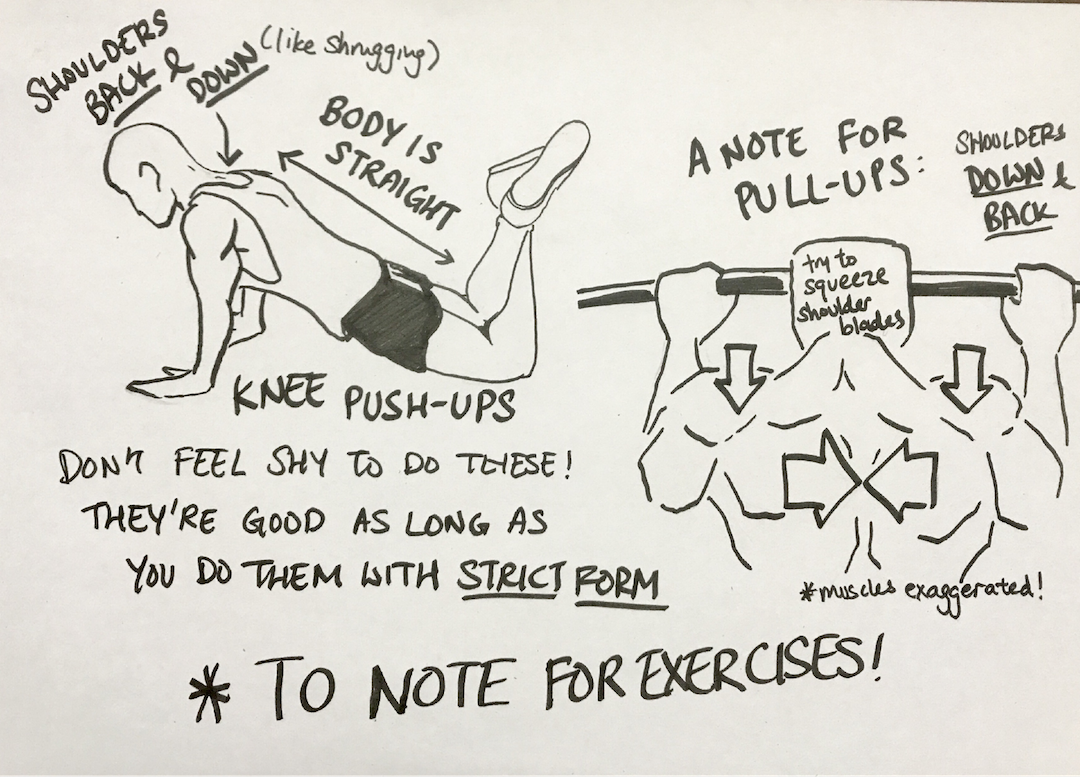 SHOULDERS
BACK & DOWN (like shrugging)
BODY IS
STRAIGHT
KNEE PUSH-UPS
DON'T FEEL SHY TO DO THESE!
THEY'RE GOOD AS LONG AS
YOU DO THEM WITH STRICT FORM
A NOTE FOR
PULL-UPS:
SHOULDERS
DOWN &
BACK
try to
squeeze
shoulder
blades
*muscles exaggerated!
* TO NOTE FOR EXERCISES!